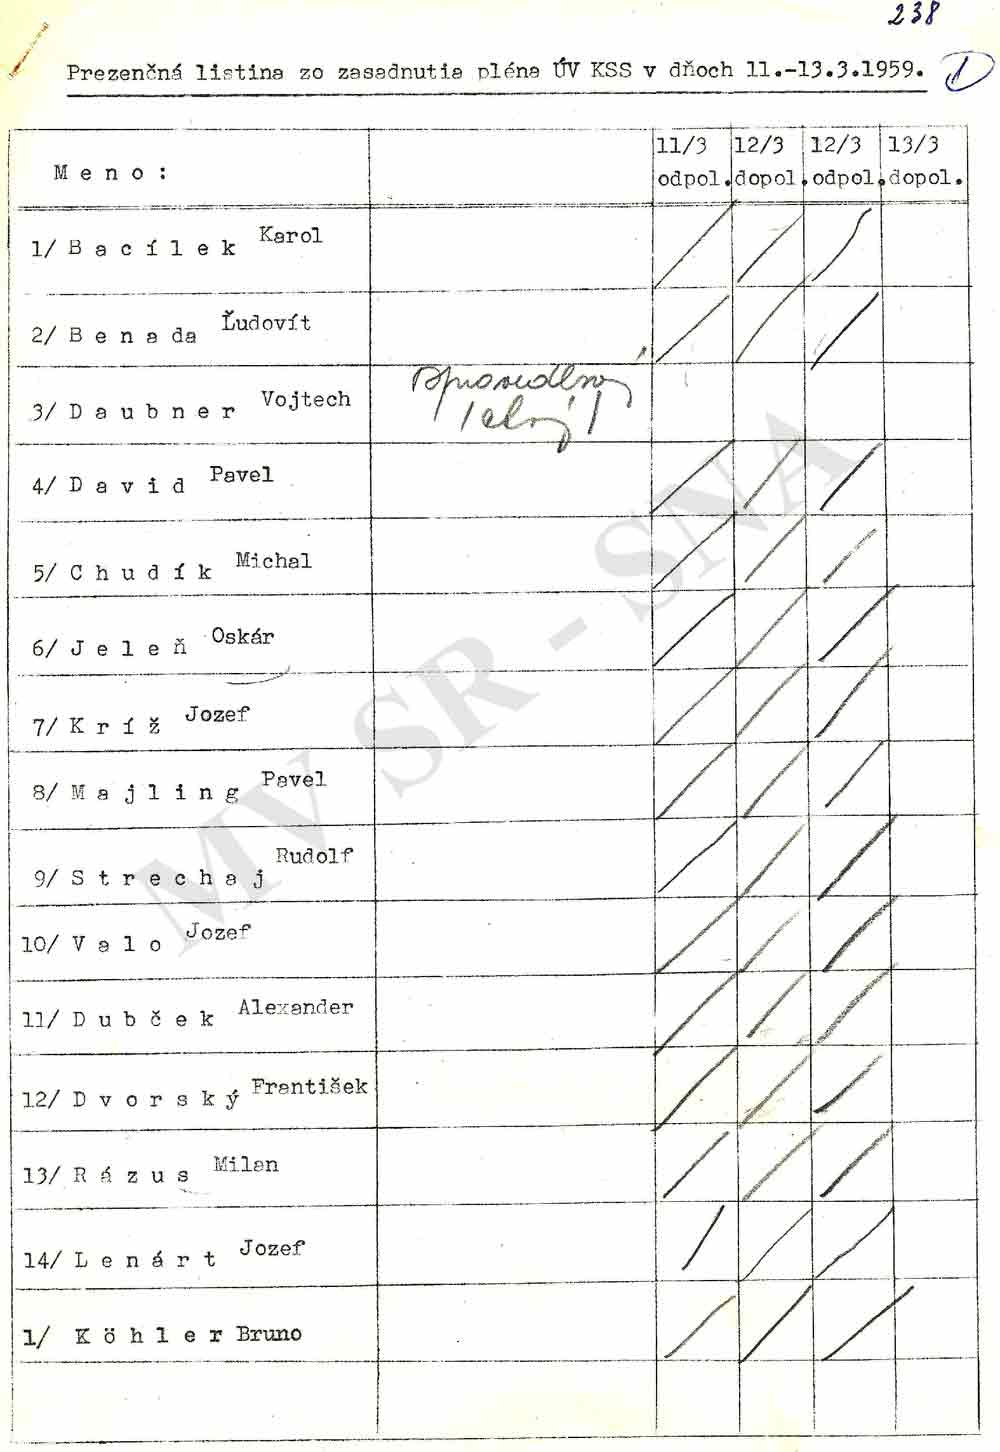 238
Prezenčná listina zo zasadnutia pléna ÚV KSS v dňoch 11.-13.3.1959.
M e n o :
11/3 odpol.
12/3 dopol.
12/3 odpol.
13/3 dopol.
1/ B a c í l e k Karol
2/ B e n a da Ľudovít
3/ D a u b n e r Vojtech
4/ D a v i d Pavel
5/ C h u d í k Michal
6/ J e l e ň Oskár
7/ K r í ž Jozef
8/ M a j l i n g Pavel
9/ S t r e c h a j Rudolf
10/ V a l o Jozef
11/ D u b č e k Alexander
12/ D v o r s k ý František
13/ R á z u s Milan
14/ L e n á r t Jozef
1/ K ö h l e r Bruno
MV SR - SNA